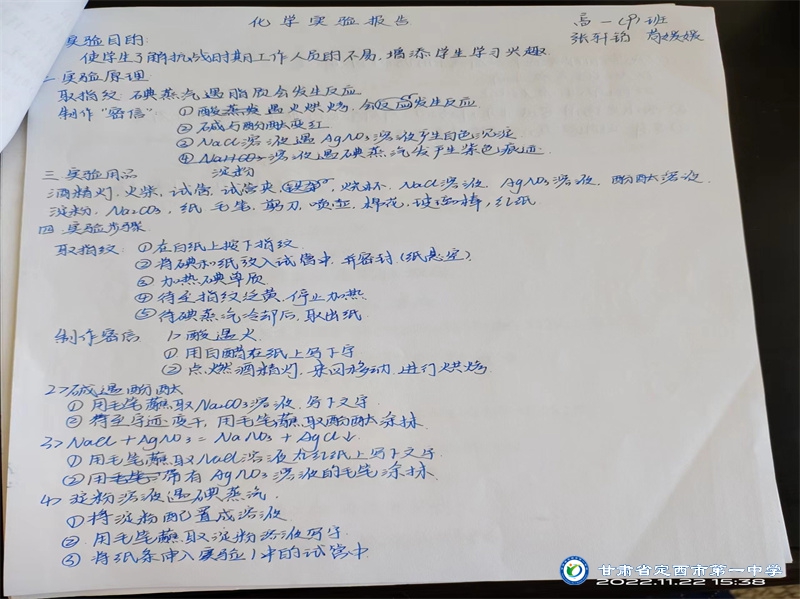 化学实验报告
高一(9)班
实验目的:
张轩铭
使学生了解抗战时期工作人员的不易,增添学生学习兴趣
二实验原理
取指纹:碘蒸汽遇脂质会发生反应
制作"密信" ①酸蒸发遇火烘烤,会发生反应
②碱与酚酞变红
③NaCl溶液遇AgNO3溶液产生白色沉淀
④溶液遇碘蒸汽发产生紫色痕迹
淀粉
三实验用品
酒精灯,火柴,试管,试管夹,烧杯,NaCl溶液,AgNO3溶液,酚酞溶液,
淀粉,Na2CO3,纸,毛笔,剪刀,喷壶,棉花,玻璃棒,红纸
四实验步骤
取指纹:①在白纸上按下指纹
②将碘和纸放入试管中,并密封(纸悬空)
③加热碘单质
④待至指纹泛黄,停止加热
⑤待碘蒸汽冷却后,取出纸
制作密信 1>酸遇火
①用白醋在纸上写下字
②点燃酒精灯,来回移动,进行烘烤
2>碱遇酚酞
①用毛笔蘸取Na2CO3溶液,写下文字
②待至字迹变干,用毛笔蘸取酚酞涂抹
3>NaCl+AgNO3=NaNO3+AgCl↓
①用毛笔蘸取NaCl溶液在红纸上写下文字
②用带有AgNO3溶液的毛笔涂抹
4>淀粉溶液遇碘蒸汽
①将淀粉配置成溶液
②用毛笔蘸取淀粉溶液写字
③将纸条伸入实验1中的试管中
甘肃省定西市第一中学
2022.11.22 15:38